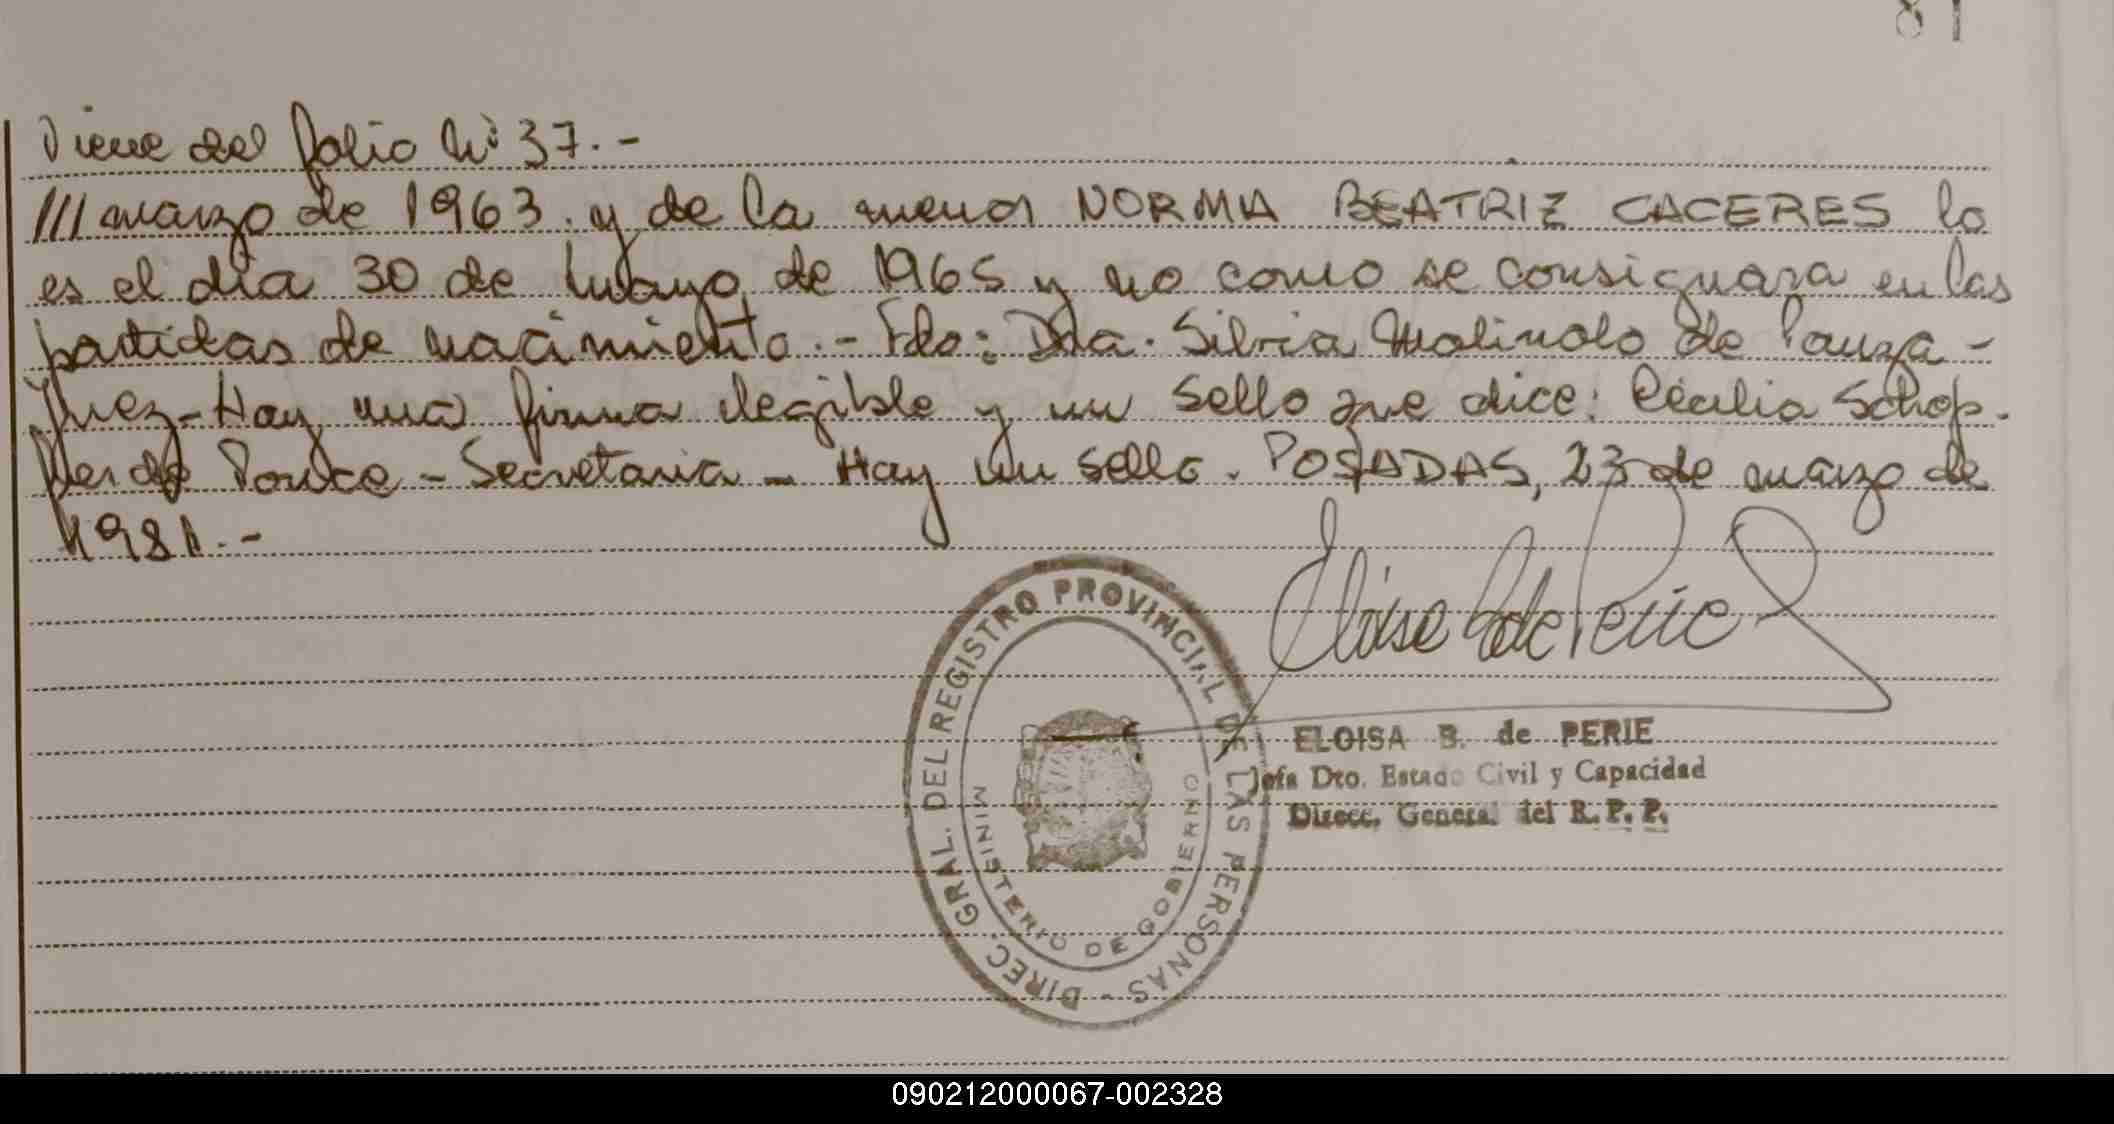 81
Viene del folio Nº 37.-
/// marzo de 1963. y de la menor NORMA BEATRIZ CACERES lo
es el día 30 de mayo de 1965 y no como se consignara en las
partidas de nacimiento.- Fdo: Dra. Silvia Molinolo de Panza -
Juez - Hay una firma ilegible y un sello que dice: Cecilia Schop-
ler de Ponce - Secretaria - Hay un sello. POSADAS, 23 de marzo de
1981.-
DIREC. GRAL. DEL REGISTRO PROVINCIAL DE LAS PERSONAS -
MINISTERIO DE GOBIERNO
ELOISA B. de PERIE
Jefa Dto. Estado Civil y Capacidad
Direcc. General del R. P. P.
090212000067-002328